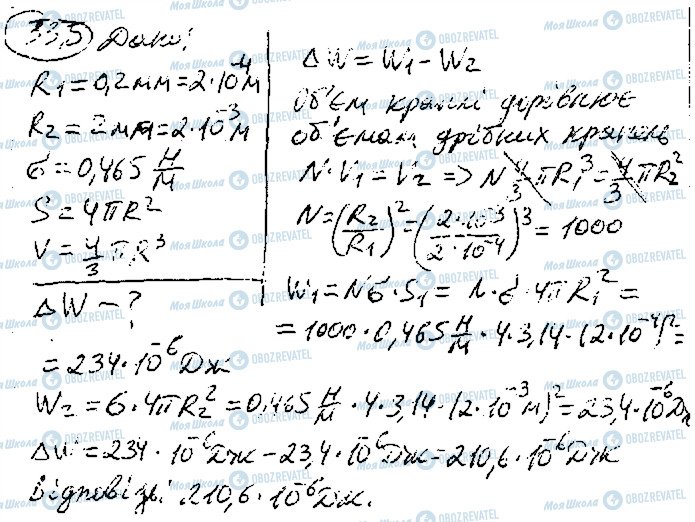 33,5 Дано:
R₁ = 0,2 мм = 2·10⁻⁴ м
R₂ = 2 мм = 2·10⁻³ м
σ = 0,465 Н/м
S = 4πR²
V = 4/3 πR³
ΔW – ?
ΔW = W₁ – W₂
Об'єм краплі дорівнює
об'ємам дрібних крапель
N·V₁ = V₂ => N 4/3 πR₁³ = 4/3 πR₂²
N = (R₂/R₁)² = (2·10⁻³/2·10⁻⁴)³ = 1000
W₁ = Nσ·S₁ = N·σ·4πR₁² =
= 1000·0,465 Н/м ·4·3,14·(2·10⁻⁴)² =
= 234·10⁻⁶ Дж
W₂ = σ·4πR₂² = 0,465 Н/м ·4·3,14·(2·10⁻³ м)² = 23,4·10⁻⁶ Дж
ΔW = 234·10⁻⁶ Дж – 23,4·10⁻⁶ Дж = 210,6·10⁻⁶ Дж
Відповідь: 210,6·10⁻⁶ Дж.